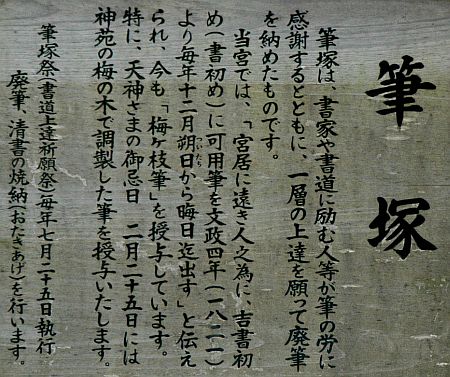 筆塚
筆塚は、書家や書道に励む人等が筆の労に
感謝するとともに、一層の上達を願って廃筆
を納めたものです。
当宮では、「宮居に遠き人之為に、吉書初
め(書初め)に可用筆を文政四年(一八二一)
より毎年十二月朔日(ついたち)から晦日迄出す」と伝え
られ、今も「梅ヶ枝筆」を授与しています。
特に、天神さまの御忌日 二月二十五日には
神苑の梅の木で調製した筆を授与いたします。
筆塚祭(書道上達祈願祭)毎年七月二十五日執行
廃筆、清書の焼納(おたきあげ)を行います。